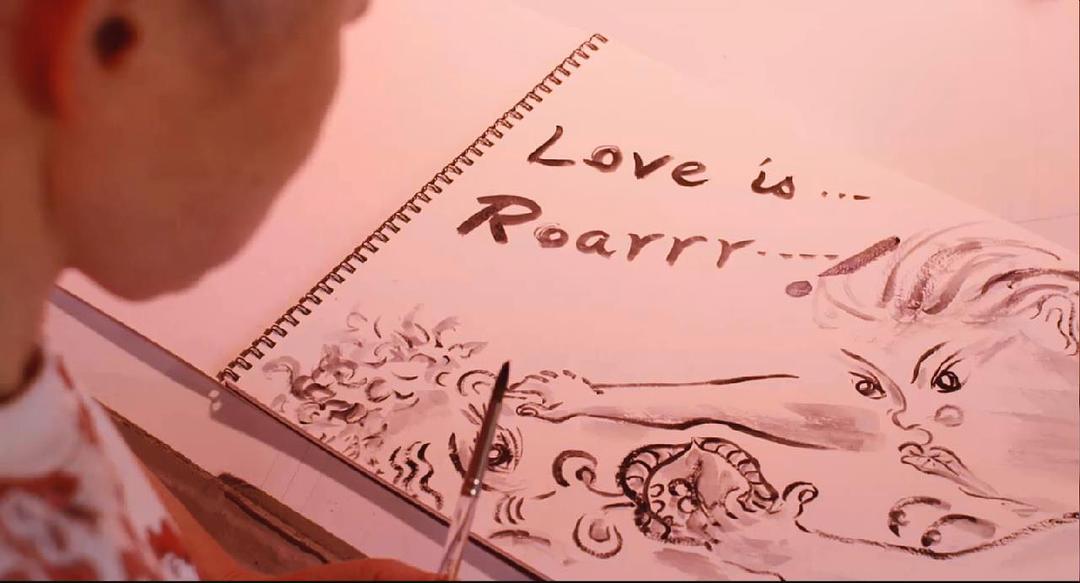 Love is ...
Roarrr-----!